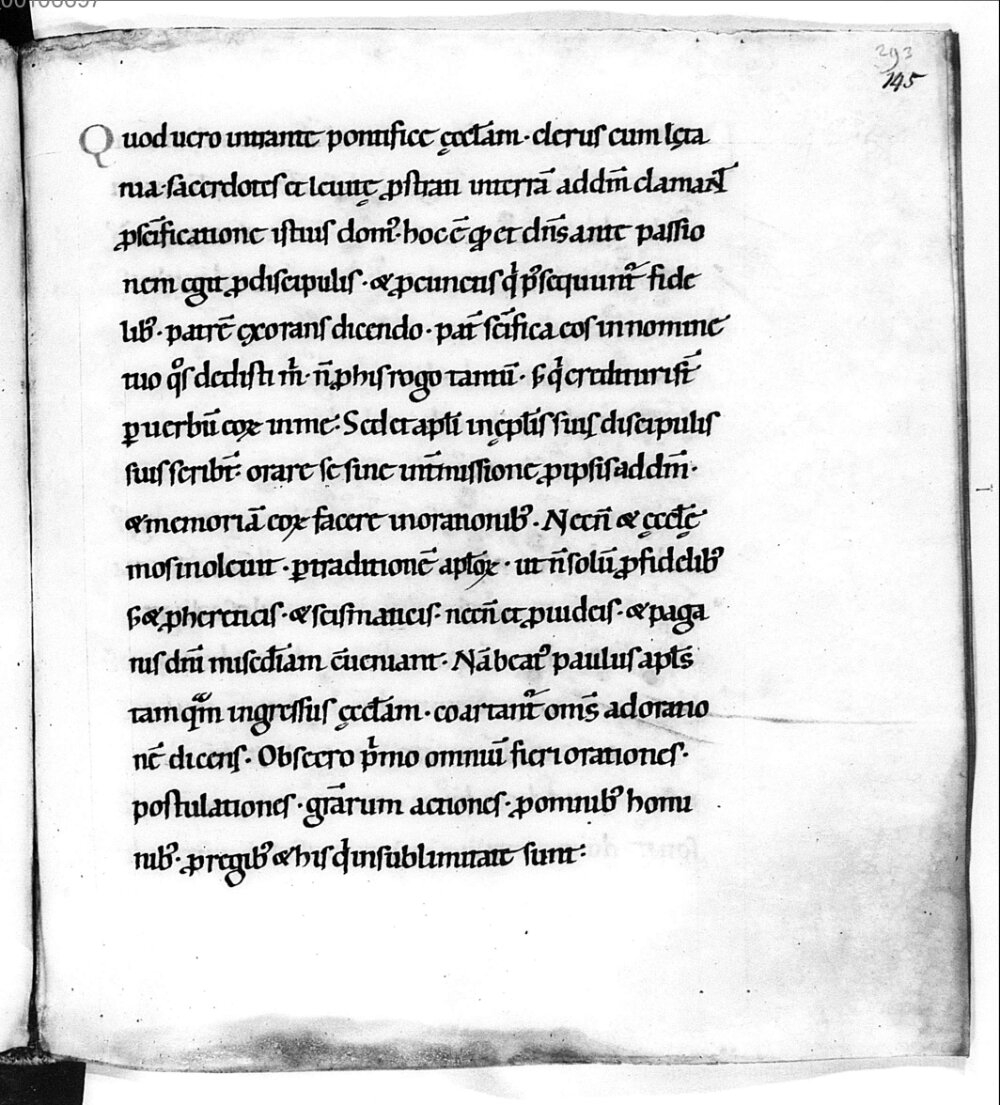 293
145
Quod uero intrante pontifice ęcclãm · clerus cum lęta
nia · sacerdotes et leuitę ꝓstrati interrã addm̃ clamant̃
ꝓsc̃ificatione istius domꝰ · hoc ẽ qd̃ et dñs ante passio
nem egit ꝓdiscipulis · & ꝓcunctis q̇ p̃sequunt̃ fide
libꝫ · patrẽ ęxorans dicendo · pat̃ sc̃ifica eos innomine
tuo q̊s dedisti m̃ · ñꝓhis rogo tantũ · ꞩ q̇ credituri st̃
ꝑuerbũ eoꝝ inme · Sed et apłi inęplĩs suis discipulis
suis scribt̃ · orare se sine int̃missione ꝓipsis addm̃ ·
& memoriã eoꝝ facere inorationibꝫ · Necñ & ęcclę̃
mos inoleuit · ꝑtraditionẽ apłoꝝ · ut ñ solũ ꝓfidelibꝫ
ꞩ & ꝓhereticis · & scismaticis · necñ et ꝓiudeis · & paga
nis dñi misc̃diam c̃ueniant · Nã beatꝰ paulus apłs
tamqᷓm ingressus ęcclãm · coartant̃ oms̃ adoratio
nẽ dicens · Obsecro p̃mo omniũ fieri orationes ·
postulationes · grãrum actiones · ꝓomnibꝫ homi
nibꝫ · ꝓregibꝫ & his q̇ insublimitate sunt :